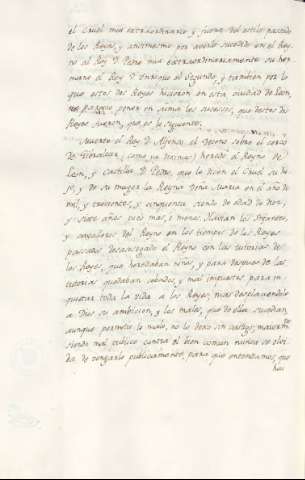 el Cruel mui extraordinario, y fuera del estilo passado
de los Reyes, y ansimismo por averle sucedido en el Rey-
no al Rey D. Pedro mui extraordinariamente su her-
mano el Rey D. Enrrique el Segundo, y tambien por lo
que estos dos Reyes hicieron en esta ciudad de Leon,
poner en suma los sucessos, que destos dos
Reyes fueron, que es lo siguiente.
Muerto el Rey D. Alfonso el Onceno sobre el cerco
de Gibraltar, como ya heredó el Reyno de
Leon, y Castilla D. Pedro, que le dicen el Cruel su hi-
jo, y de su muger la Reyna Doña Maria en el año de
mil, y trecientos, y cinquenta, siendo de edad de diez,
y siete años poco mas, o menos. Los Infantes,
y del Reyno en los tiempos de los Reyes
passados desasosegado el Reyno con las tutorias de
los Reyes, que heredaban niños, y para despues de las
tutorias quedaban sabidos, y mal impuestos para in-
quietar toda la vida a los Reyes, mas desplaciendole
a Dios su ambicion, y los males, que de ella sucedian,
aunque permitio lo malo, no lo dexo sin castigo, maiormte
siendo mal publico contra el bien comun nunca se olvi-
da de vengarlo publicamente, para que entendamos, que